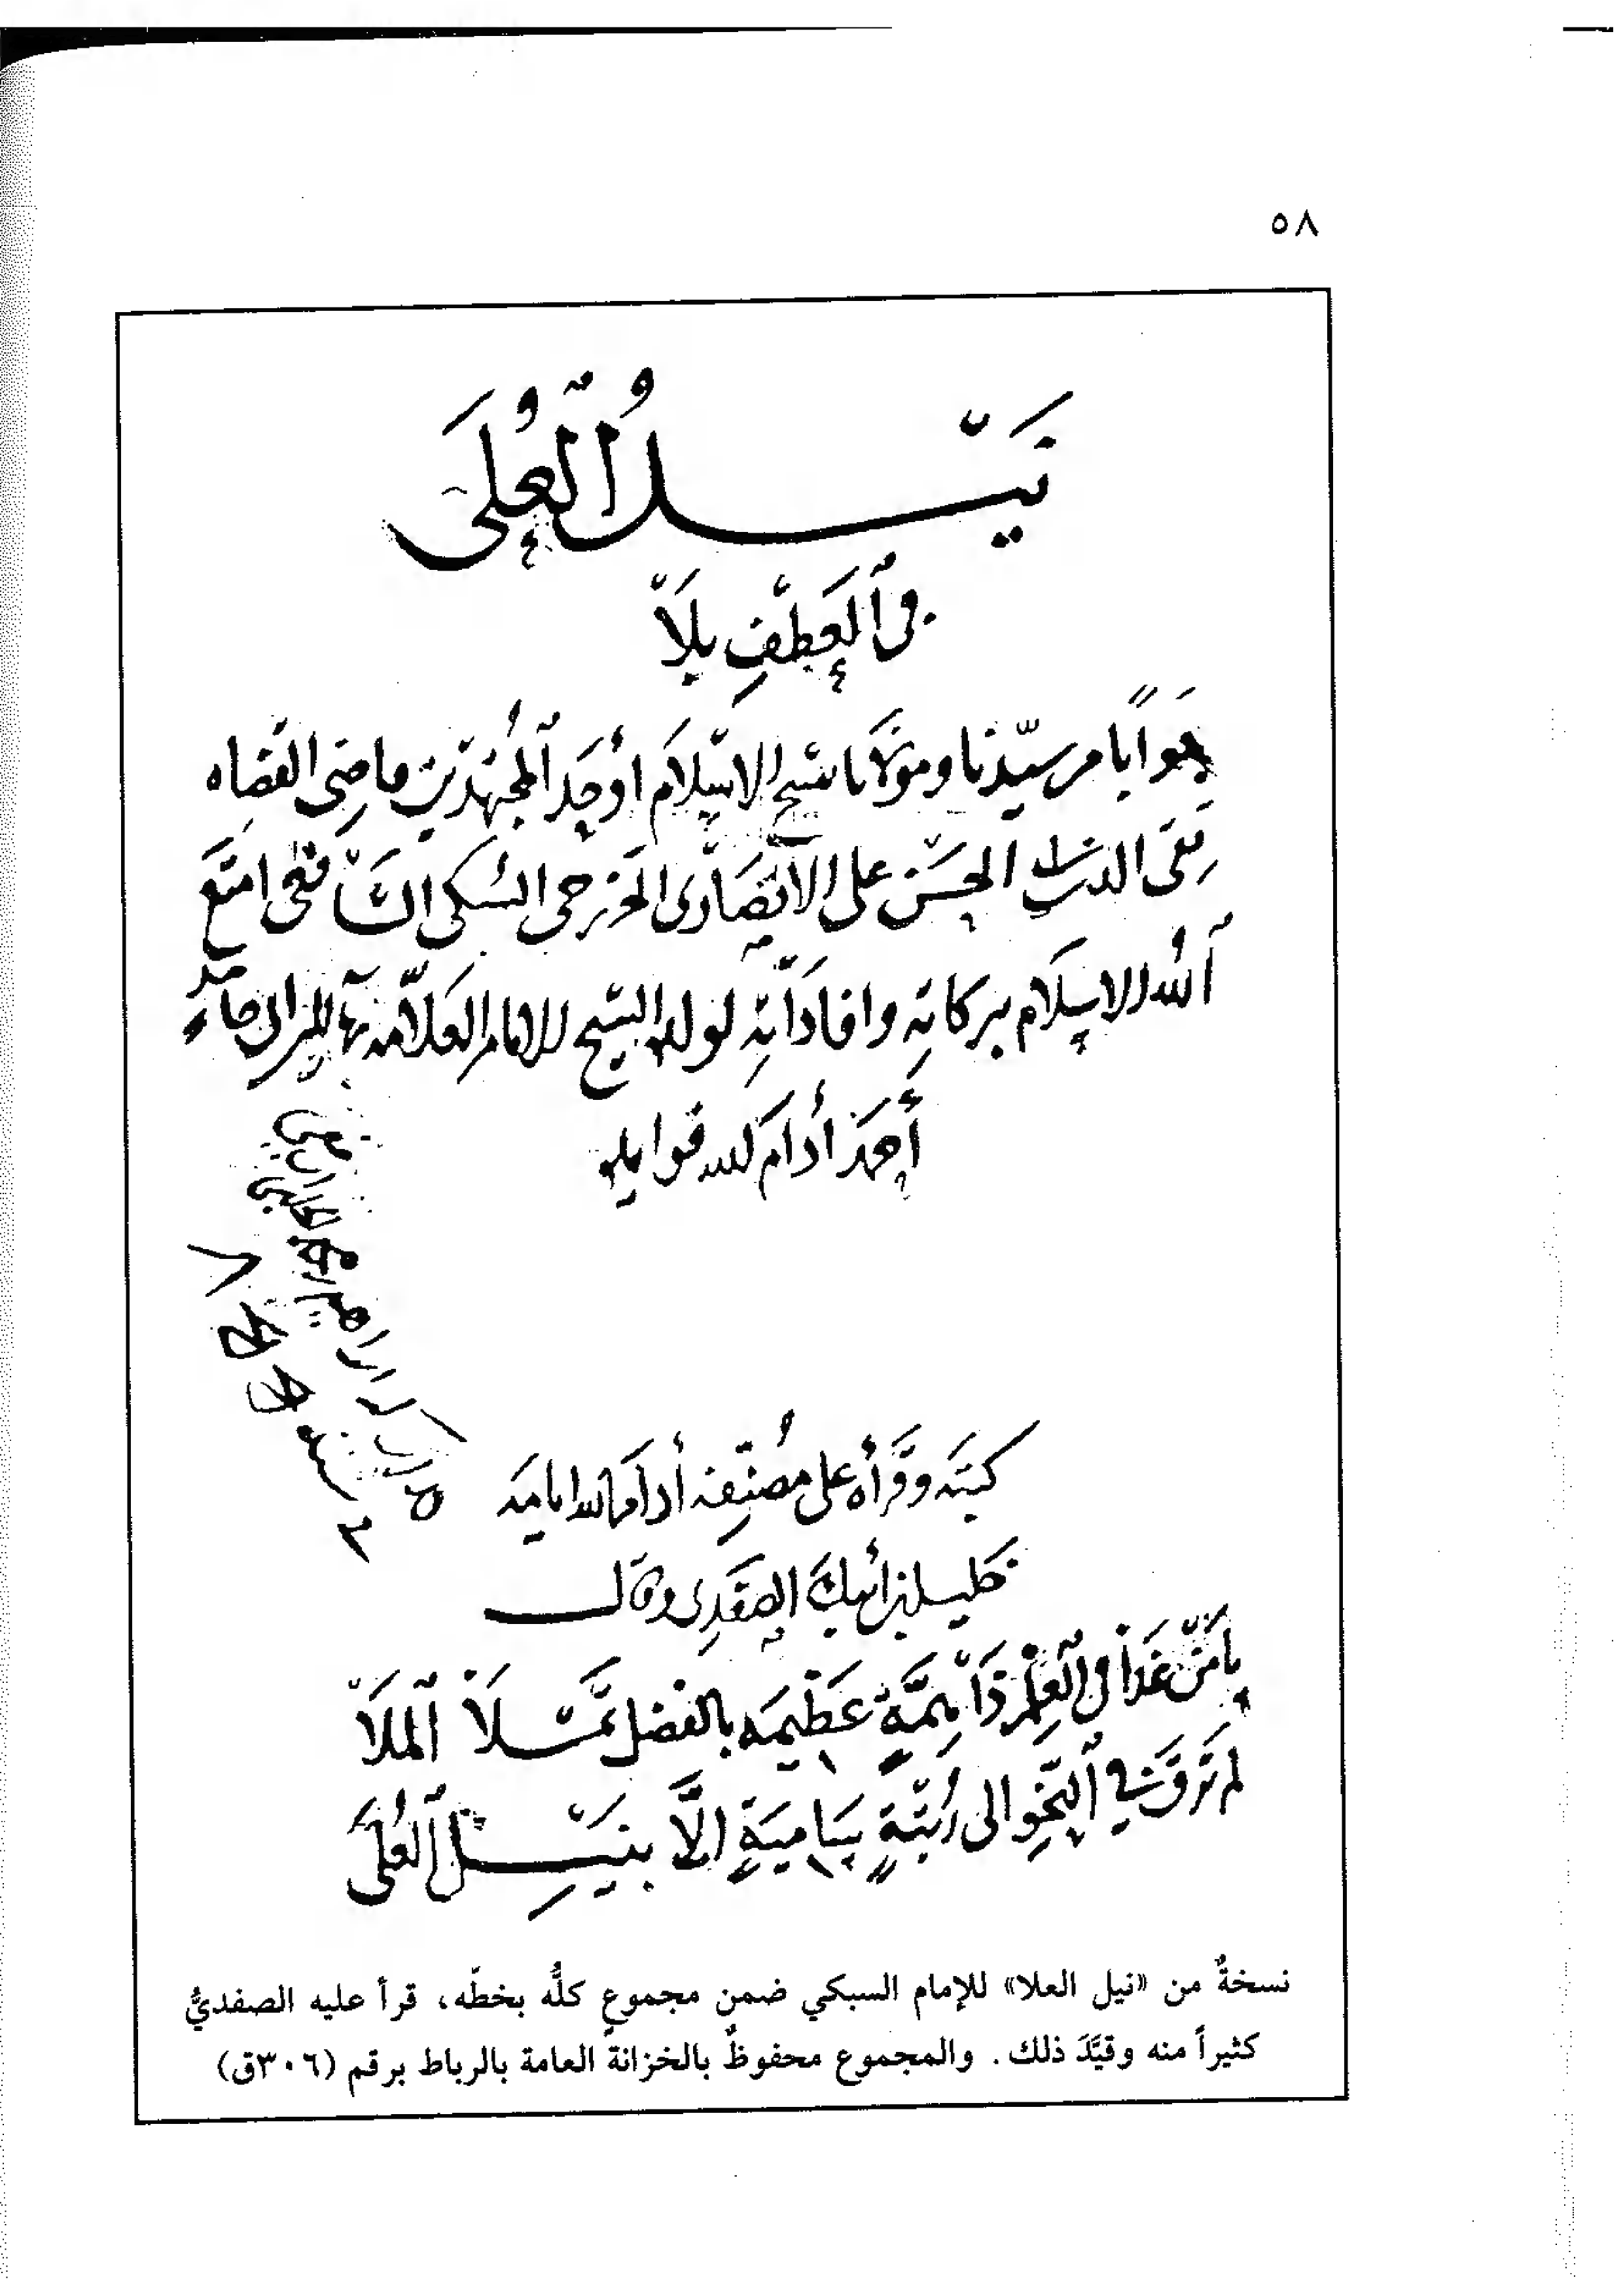 ٥٨
نَيْلُ الْعُلَى
فى ٱلْعَطْفِ بِلَا
جوابًا من سيّدنا ومولانا شيخ الاسلام أوحد ٱلمجتهدين قاضى القضاه
تقى الدين الحسن على الانصارى الخزرجى السبكى الشافعى امتع
ٱلله الاسلام ببركاته وافاداته لولده الشيخ الامام العلامة بهاء الدين حامد
أحمد أدام الله فوايده
كتبه وقرأه على مصنفه أدام الله ايامه
خليل بن أيبك الصفدى وقال
يا مَنْ غدا فى العِلْمِ ذا هِمَّةٍ عَظِيمَه بالفضل تَمْلَا ٱلْمَلَا
لم تَرْقَ فى ٱلنَّحْوِ الى رُتْبَةٍ سَامِيَةٍ إلَّا بِنَيْلِ ٱلْعُلَى
نسخةٌ من «نيل العلا» للإمام السبكي ضمن مجموعٍ كلُّه بخطّه، قرأ عليه الصفديُّ
كثيراً منه وقيَّدَ ذلك. والمجموع محفوظٌ بالخزانة العامة بالرباط برقم (٣٠٦ق)